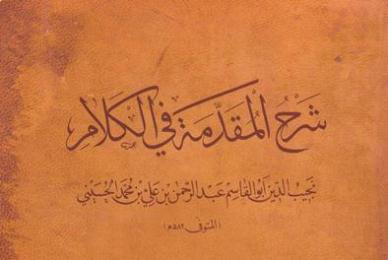 شرح المقدمة في الكلام
نجيب الدين أبو القاسم عبد الرحمن بن علي بن محمد الحسيني
(المتوفى ٥٨٢هـ)